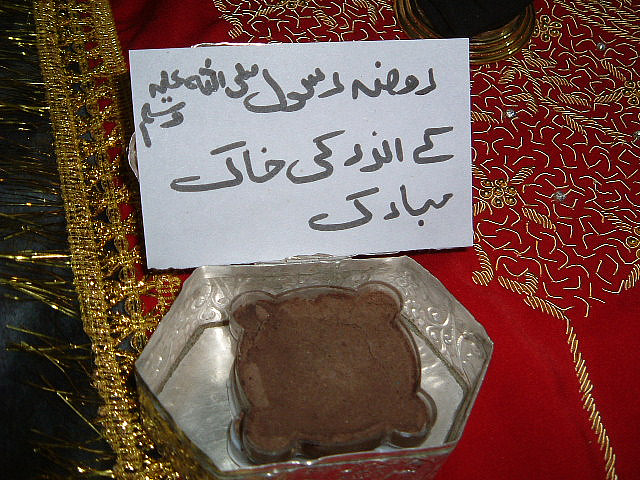 روضہ رسول صلی اللہ علیہ وسلم
کے اندر کی خاک
مبارک